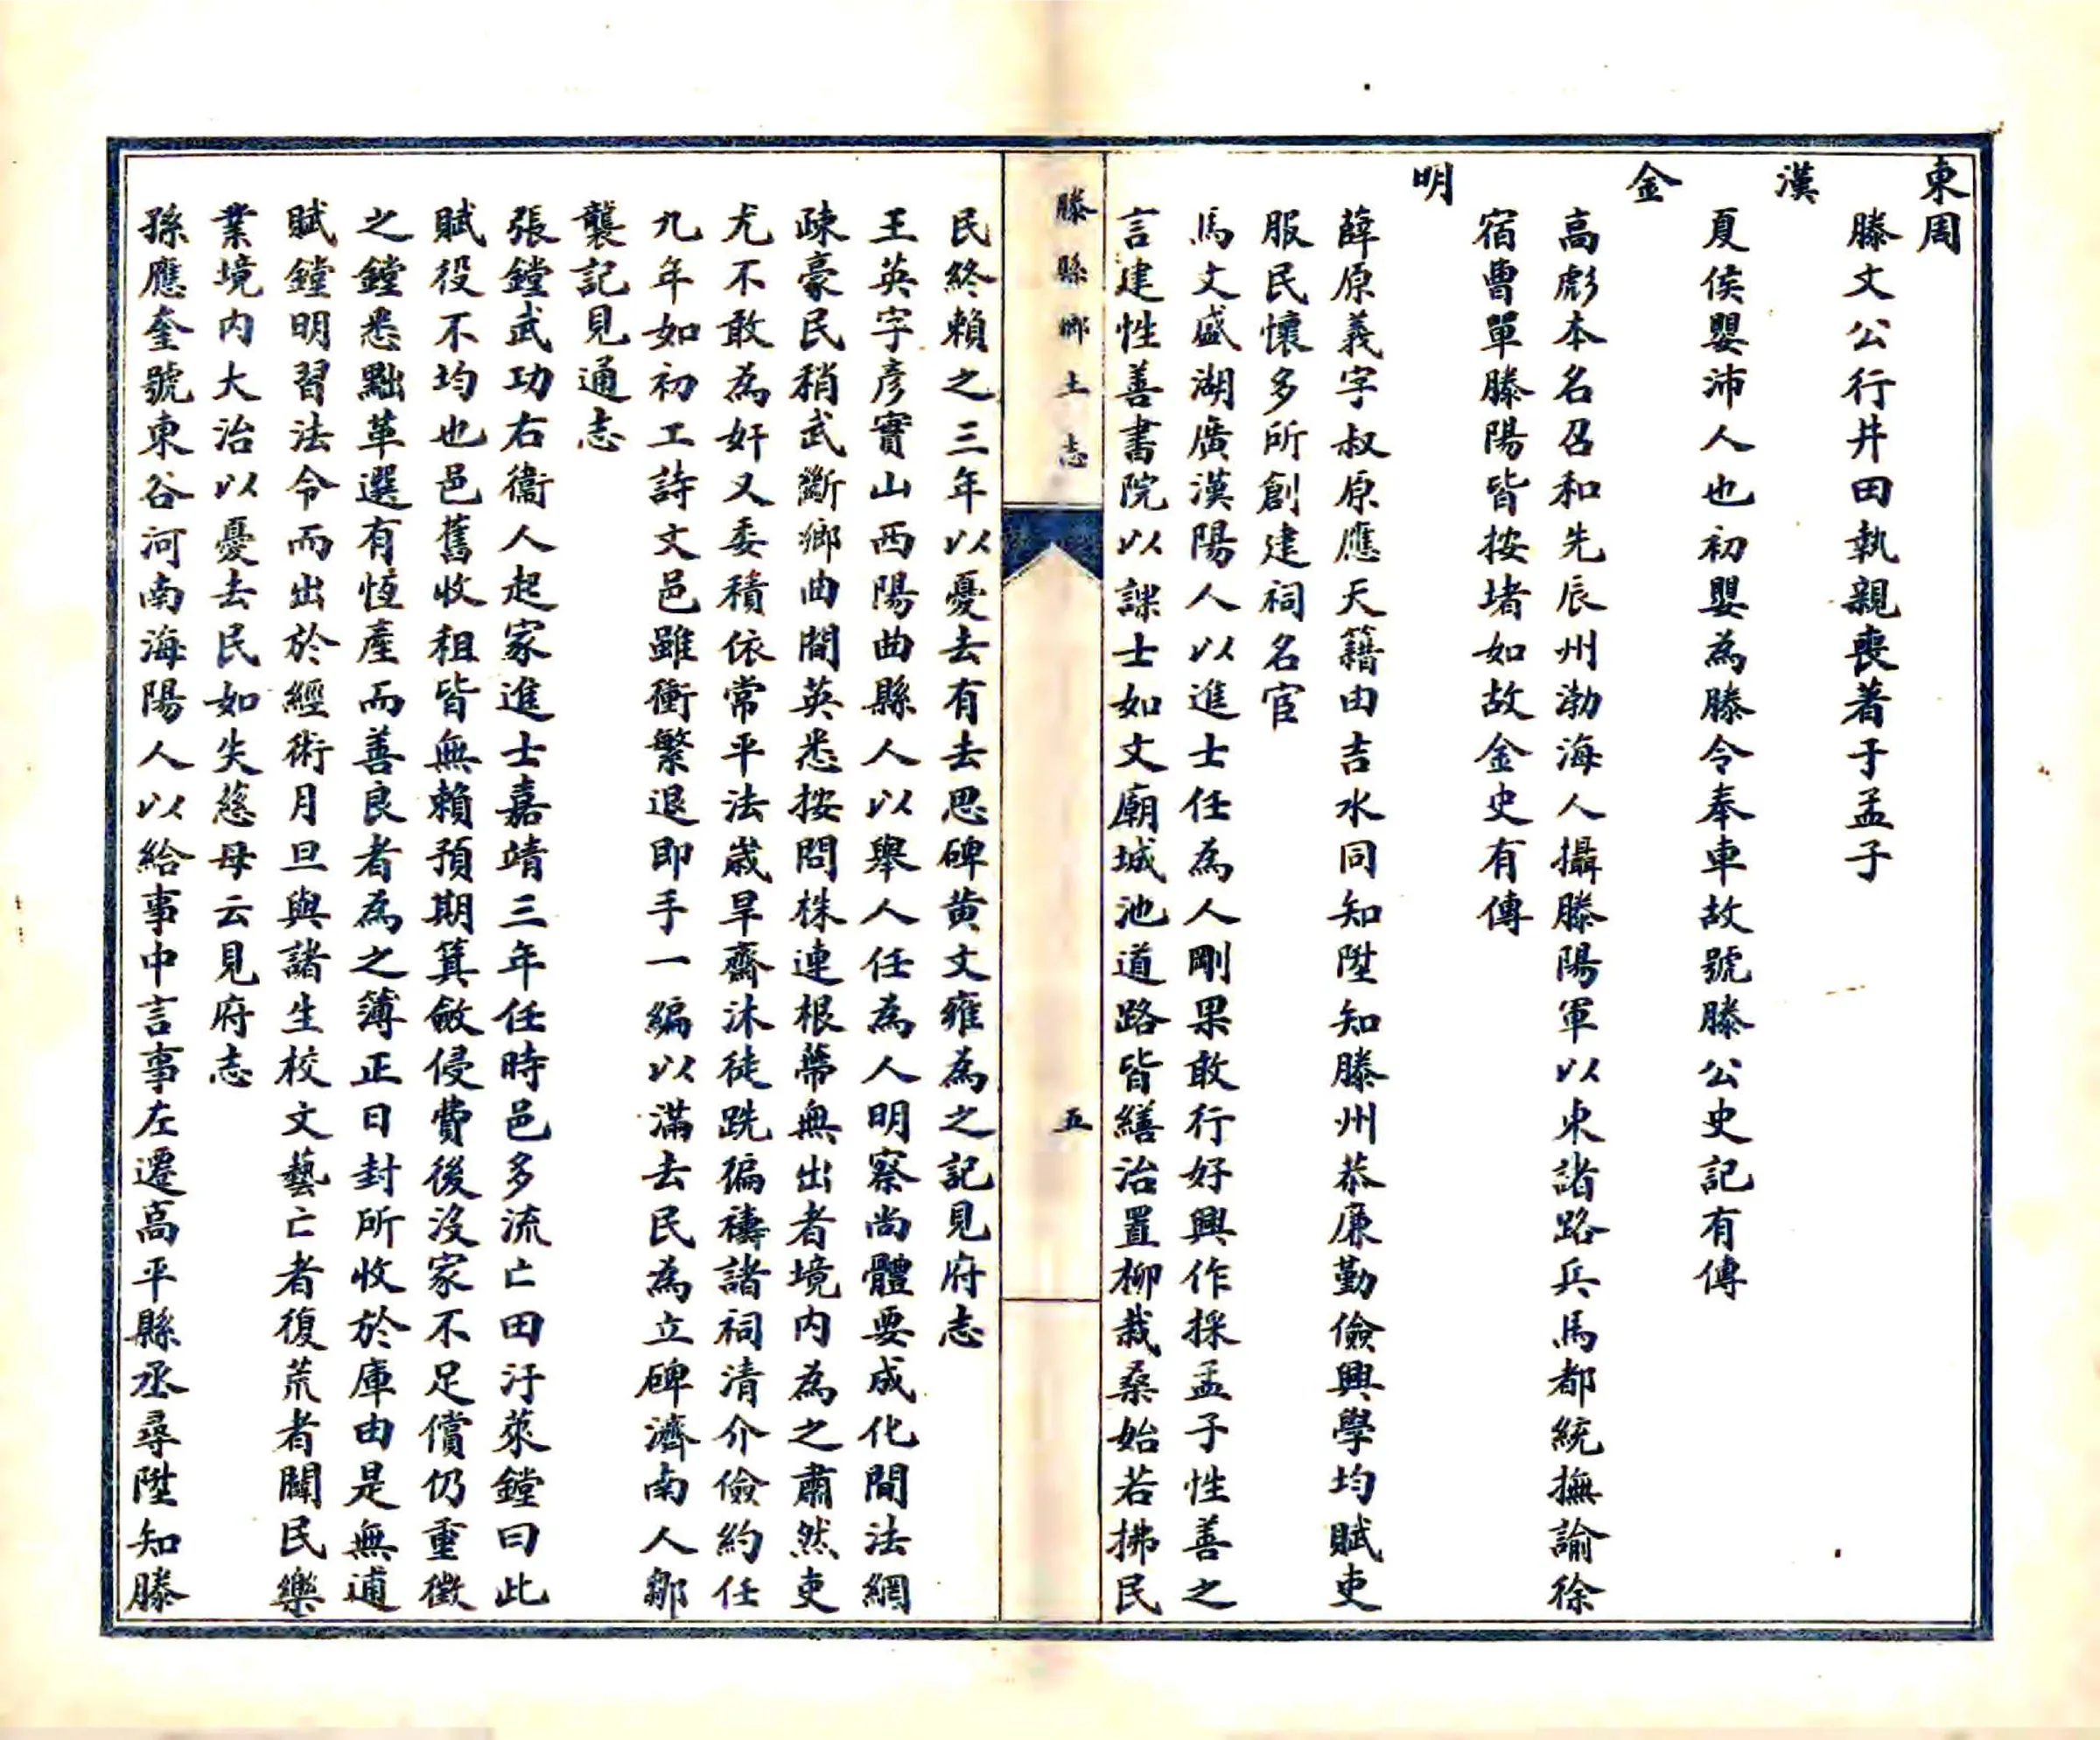 東周
滕文公行井田執親喪著于孟子
漢
夏侯嬰沛人也初嬰為滕令奉車故號滕公史記有傳
金
高彪本名召和先辰州渤海人攝滕陽軍以東諸路兵馬都統撫諭徐
宿曹單滕陽皆按堵如故金史有傳
明
薛原義字叔原應天籍由吉水同知陞知滕州恭廉勤儉興學均賦吏
服民懷多所創建祠名宦
馬文盛湖廣漢陽人以進士任為人剛果敢行好興作採孟子性善之
言建性善書院以課士如文廟城池道路皆繕治置柳栽桑始若拂民
滕縣鄉土志
五
民終賴之三年以憂去有去思碑黄文雍為之記見府志
王英字彥實山西陽曲縣人以舉人任為人明察尚體要成化間法網
疎豪民稍武斷鄉曲間英悉按問株連根蒂無出者境内為之肅然吏
尤不敢為奸又委積依常平法歲旱齋沐徒跣徧禱諸祠清介儉約任
九年如初工詩文邑雖衝繁退即手一編以滿去民為立碑濟南人鄒
襲記見通志
張鏜武功右衞人起家進士嘉靖三年任時邑多流亡田汙萊鏜曰此
賦役不均也邑舊收租皆無賴預期箕斂侵費後沒家不足償仍重徵
之鏜悉黜革選有恆產而善良者為之簿正日封所收於庫由是無逋
賦鏜明習法令而出於經術月旦與諸生校文藝亡者復荒者闢民樂
業境内大治以憂去民如失慈母云見府志
孫應奎號東谷河南海陽人以給事中言事左遷高平縣丞尋陞知滕